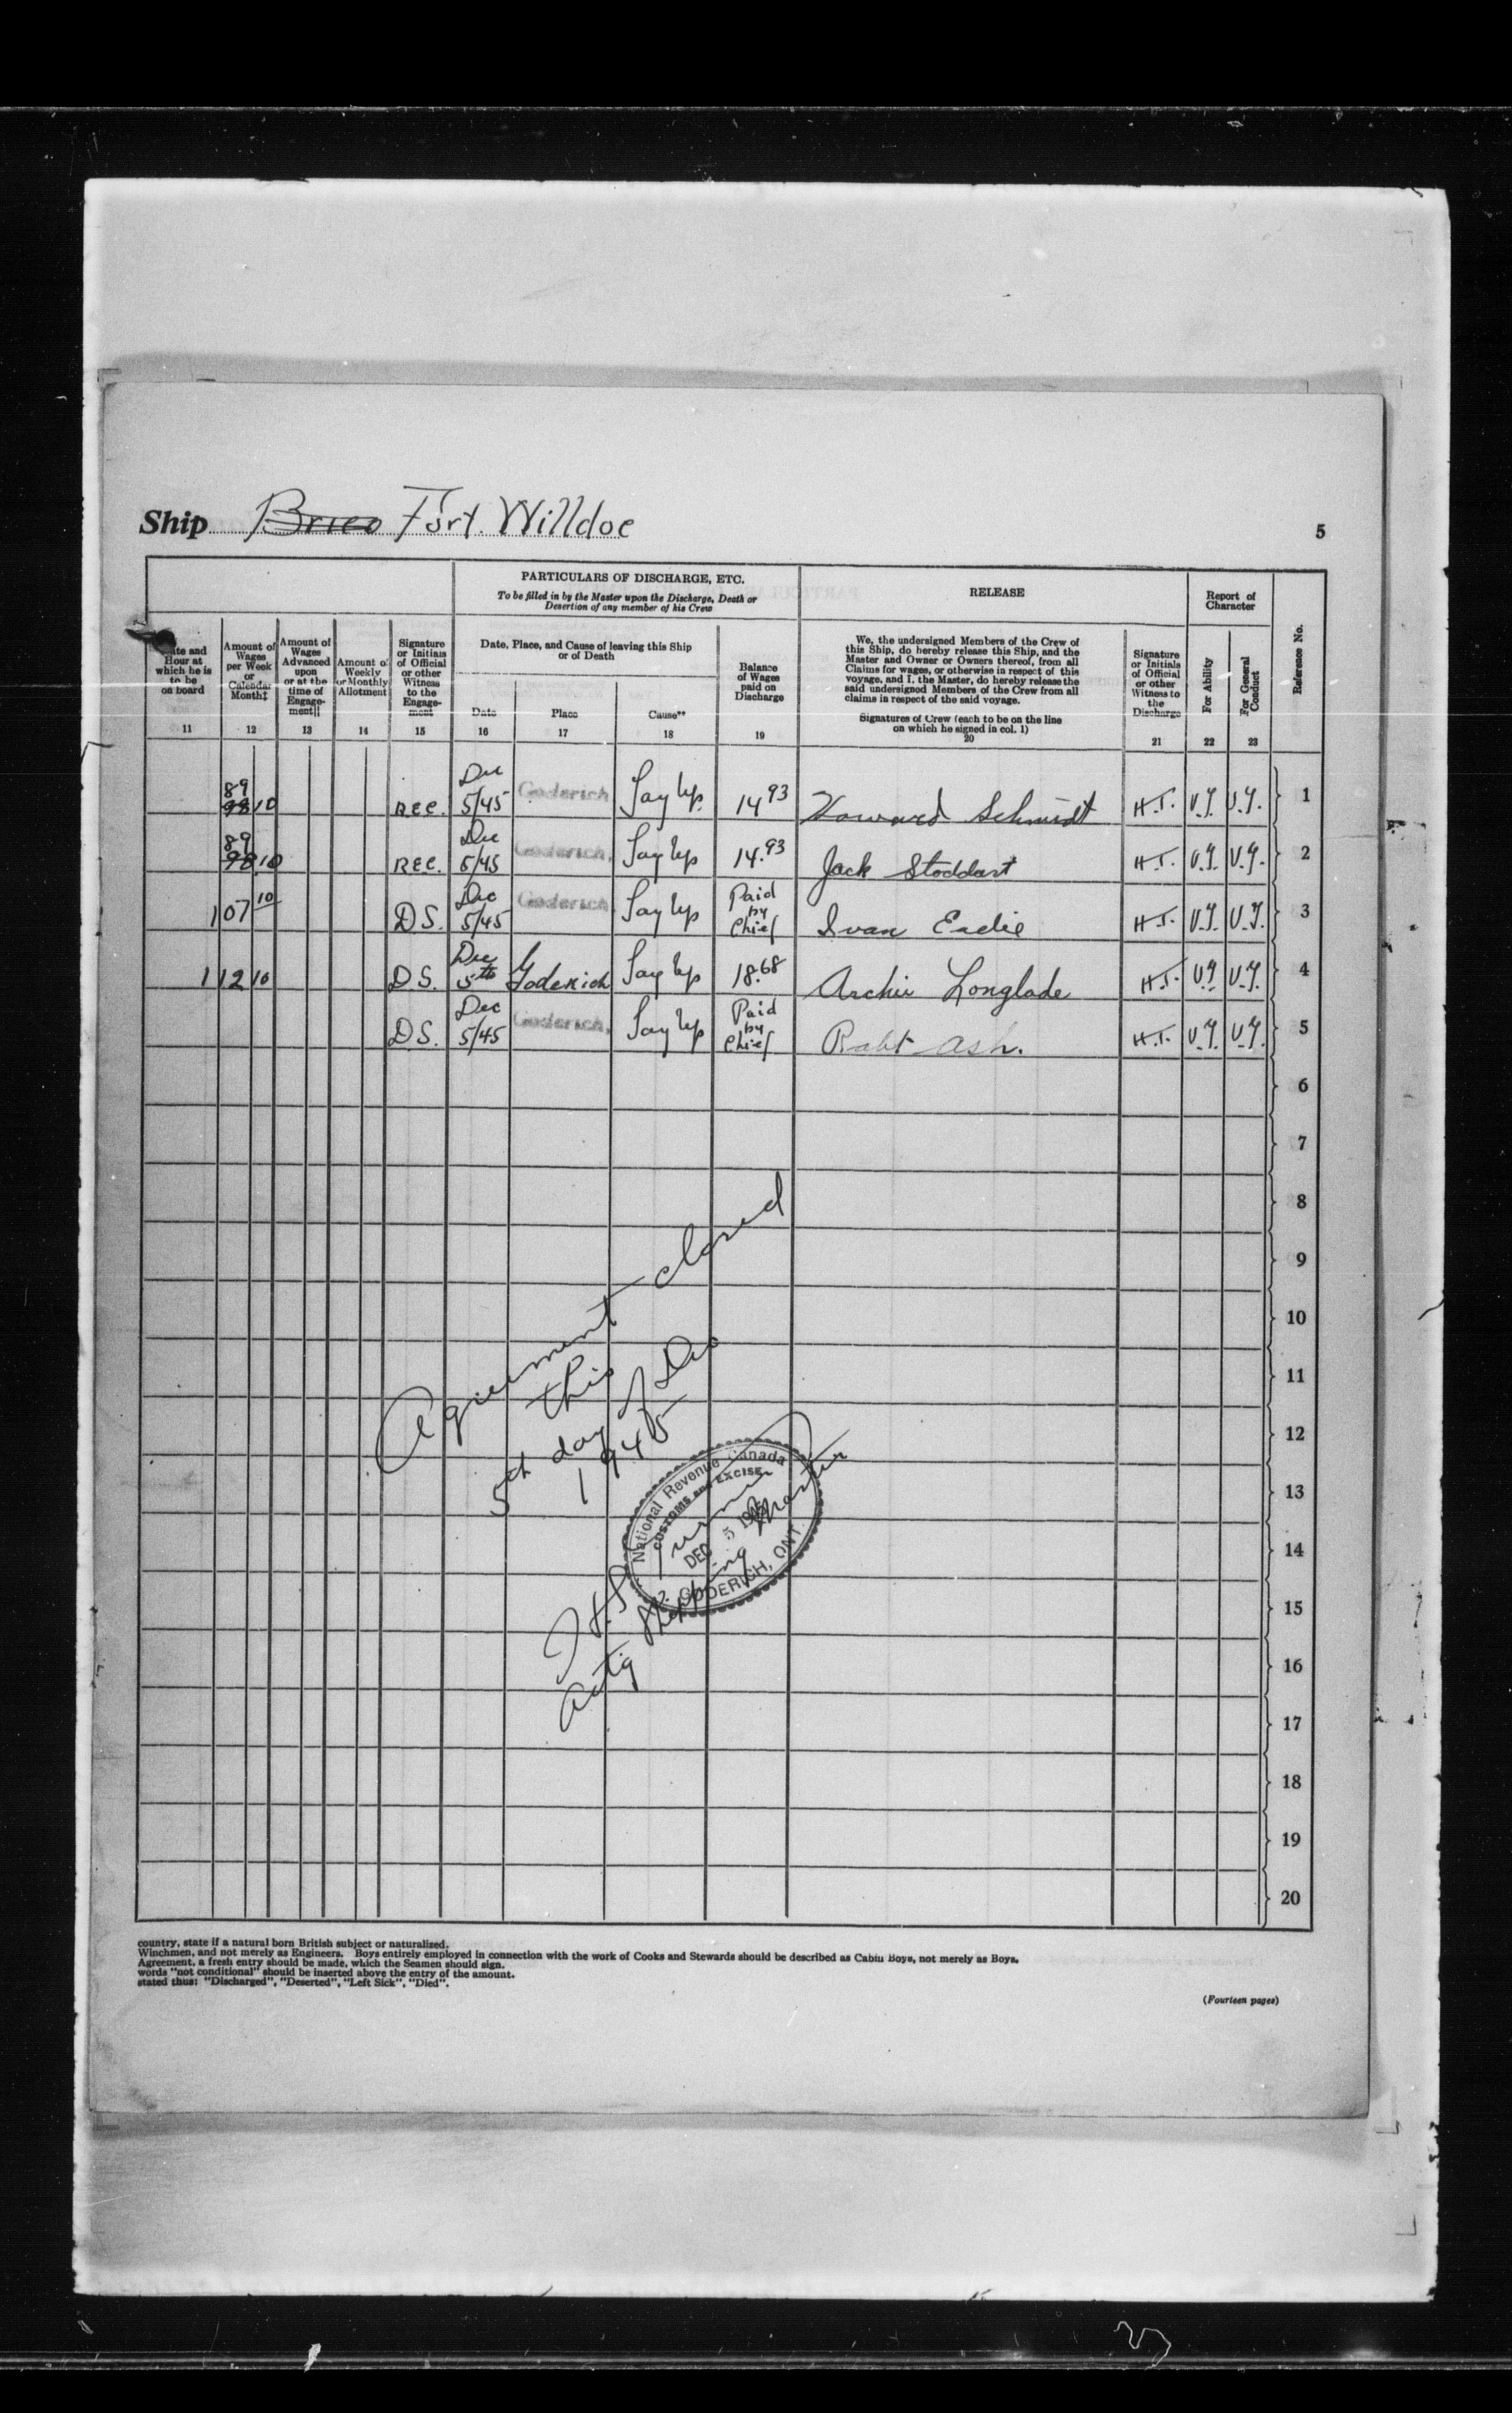 Ship Fort. Willdoe
5
PARTICULARS OF DISCHARGE, ETC.
To be filled in by the Master upon the Discharge, Death or
Desertion of any member of his Crew
RELEASE
Report of
Character
Reference No.
and
Hour at
which he is
to be
on board
11
Amount of
Wages
per Week
or
Calendar
Month‡
12
Amount of
Wages
Advanced
upon
or at the
time of
Engage-
ment||
13
Amount of
Weekly
or Monthly
Allotment
14
Signature
or Initials
of Official
or other
Witness
to the
Engage-
ment
15
Date, Place, and Cause of leaving this Ship
or of Death
Date
16
Place
17
Cause**
18
Balance
of Wages
paid on
Discharge
19
We, the undersigned Members of the Crew of
this Ship, do hereby release this Ship, and the
Master and Owner or Owners thereof, from all
Claims for wages, or otherwise in respect of this
voyage, and I, the Master, do hereby release the
said undersigned Members of the Crew from all
claims in respect of the said voyage.
Signatures of Crew (each to be on the line
on which he signed in col. 1)
20
Signature
or Initials
of Official
or other
Witness to
the
Discharge
21
For Ability
22
For General
Conduct
23
89 98 10 REC. Dec 5/45 Goderich Lay Up. 14 93 Howard Schmidt H.T. V.G. V.G. 1
89 98.10 REC. Dec 5/45 Goderich, Lay Up 14.93 Jack Stoddart H.T. V.G. V.G. 2
107 10 D.S. Dec 5/45 Goderich Lay Up Paid by Chief Ivan Eadie H.T. V.G. V.G. 3
112 10 D.S. Dec 5th Goderich Lay Up 18.68 Archie Longlade H.T. V.G V.G. 4
D.S. Dec 5/45 Goderich, Lay Up Paid by Chief Robt Ash. H.T. V.G. V.G. 5
6
7
8
9
10
11
12
13
14
15
16
17
18
19
20
Agreement closed
this
5th day of Dec
1945
National Revenue Canada
CUSTOMS and EXCISE
DEC 5 1945
GODERICH, ONT.
Turner
Actg Shipping Master
country, state if a natural born British subject or naturalized.
Winchmen, and not merely as Engineers. Boys entirely employed in connection with the work of Cooks and Stewards should be described as Cabin Boys, not merely as Boys.
Agreement, a fresh entry should be made, which the Seamen should sign.
words "not conditional" should be inserted above the entry of the amount.
stated thus: "Discharged", "Deserted", "Left Sick", "Died".
(Fourteen pages)